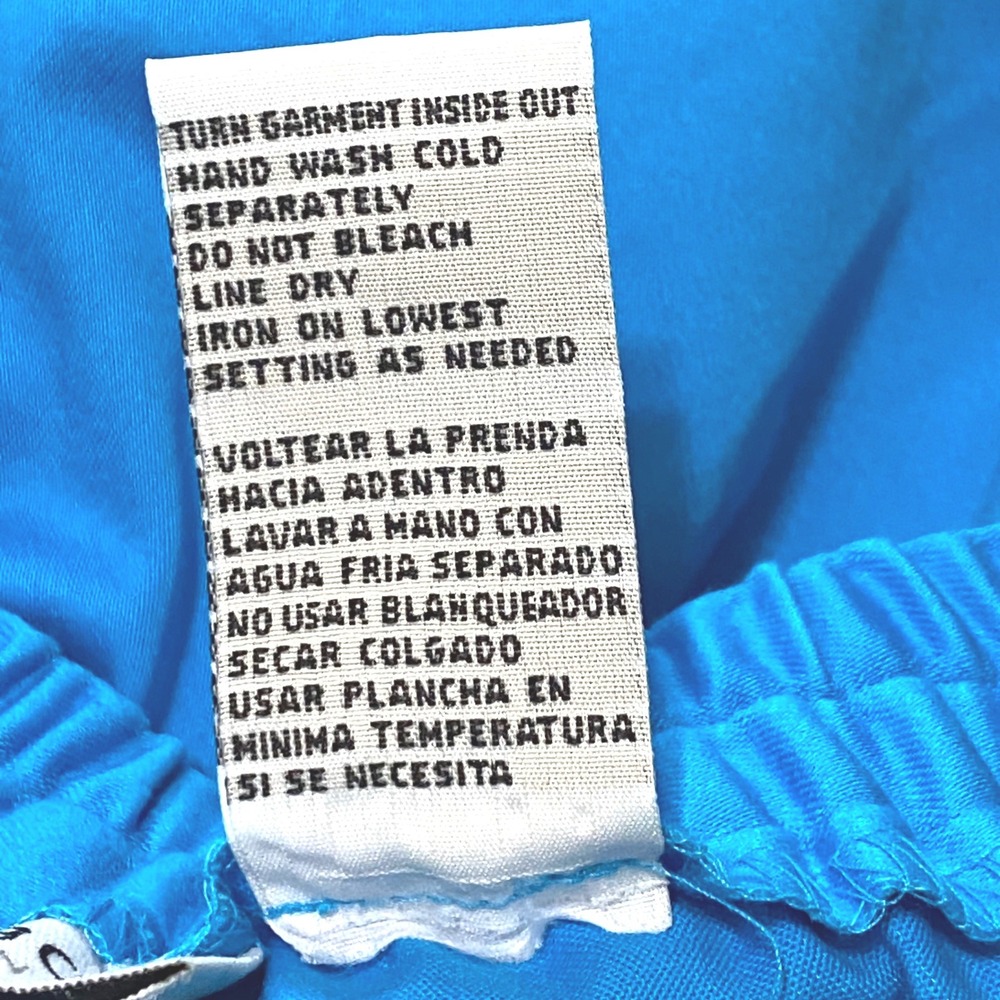 TURN GARMENT INSIDE OUT
HAND WASH COLD
SEPARATELY
DO NOT BLEACH
LINE DRY
IRON ON LOWEST
SETTING AS NEEDED
VOLTEAR LA PRENDA
HACIA ADENTRO
LAVAR A MANO CON
AGUA FRIA SEPARADO
NO USAR BLANQUEADOR
SECAR COLGADO
USAR PLANCHA EN
MINIMA TEMPERATURA
SI SE NECESITA